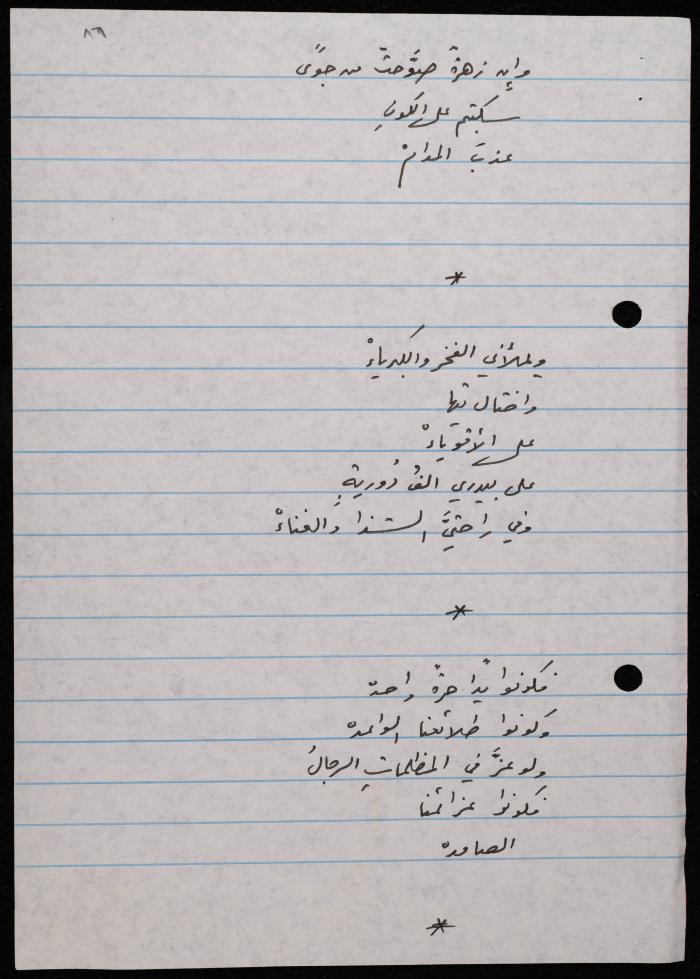 ٨٩
وإن زهرةً صوَّحتْ من جوًى
سكبتم على الكونِ
عذبَ المدامْ
*
ويملأني الفخر والكبرياءْ
واختال تيها
على الأقوياءْ
على بيدري الفُ دُوريةٍ
وفي راحتيَّ الشذا والغناءْ
*
فكونوا يداً حرةً واحدة
وكونوا طلائعنا الواعده
ولو عزَّ في المظلماتِ الرجالُ
فكونوا عزائمنا
الصامده
*